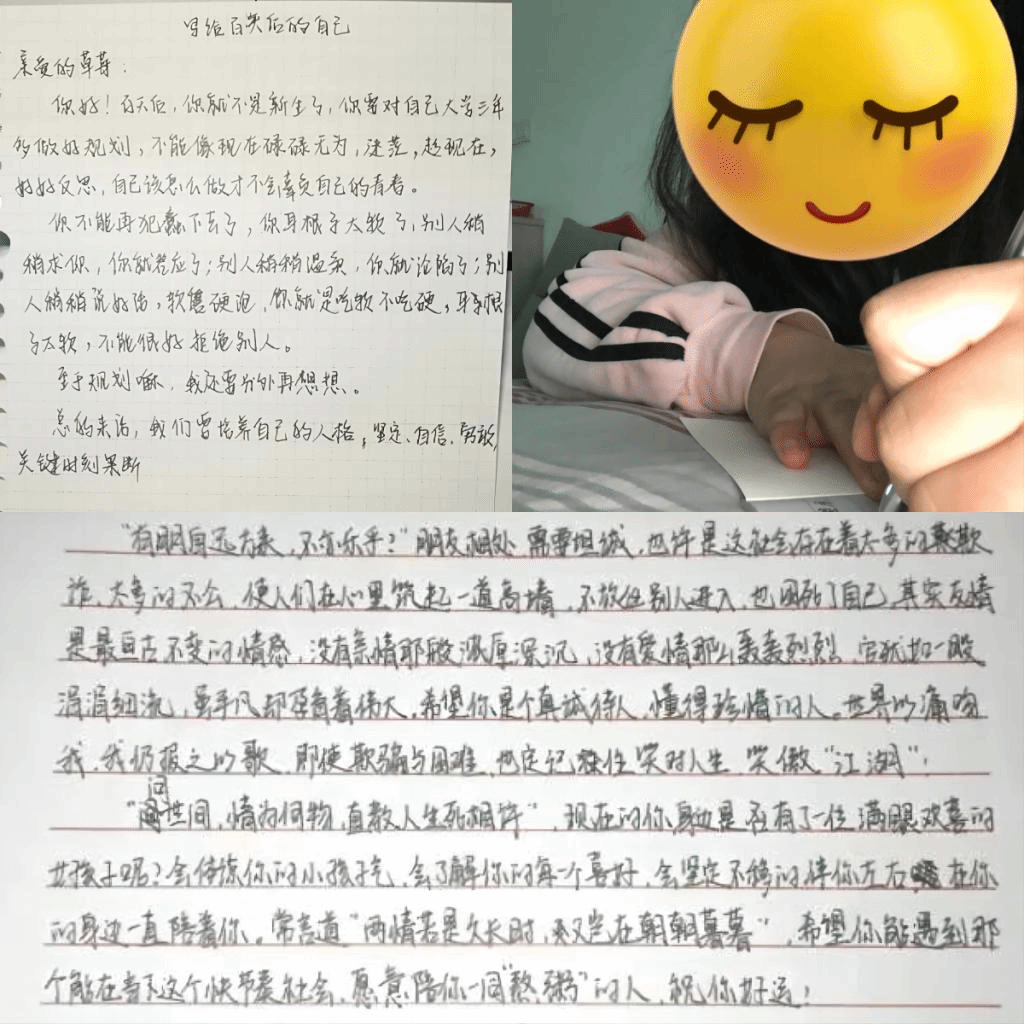 写给百天后的自己
亲爱的草莓：
你好！百天后，你就不是新生了，你需对自己大学三年
多做好规划，不能像现在碌碌无为，迷茫，趁现在，
好好反思，自己该怎么做才不会辜负自己的青春。
你不能再犯蠢下去了，你耳根子太软了，别人稍
稍求你，你就答应了；别人稍稍温柔，你就沦陷了；别
人稍稍说好话，软磨硬泡，你就是吃软不吃硬，耳根
子太软，不能很好拒绝别人。
至于规划嘛，我还要另外再想想。
总的来话，我们要培养自己的人格，坚定、自信、勇敢，
关键时刻果断
“有朋自远方来，不亦乐乎？”朋友相处需要坦诚，也许是这社会存在着太多的欺
诈，太多的不公，使人们在心里筑起一道高墙，不放任别人进入，也困死了自己，其实友情
是最亘古不变的情感，没有亲情那般浓厚深沉，没有爱情那么轰轰烈烈，它犹如一股
涓涓细流，虽平凡却孕育着伟大，希望你是个真诚待人，懂得珍惜的人。世界以痛吻
我，我仍报之以歌，即使欺骗与困难，也定记住笑对人生，笑傲“江湖”！
“问世间，情为何物，直教人生死相许”，现在的你身边是否有了一位满眼欢喜的
女孩子呢？会包容你的小孩子气，会了解你的每一个喜好，会坚定不移的伴你左右，在你
的身边一直陪着你。常言道“两情若是久长时，又岂在朝朝暮暮”，希望你能遇到那
个能在当下这个快节奏社会，愿意陪你一同“熬粥”的人，祝你好运！